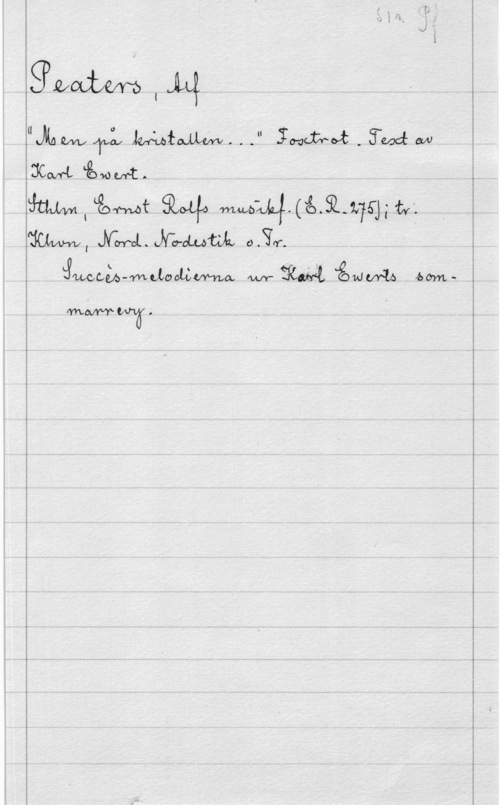 S 1 n. Pf
Peaters, Alf
"Men på kristallen..." Foxtrot. Text av
Karl Ewert.
Sthlm, Ernst Rolfs musikf. (E.R. 275); tr.
Khvn, Nord. Nodestik o. Tr.
Succès-melodierna ur Karl Ewerts som-
marrevy.